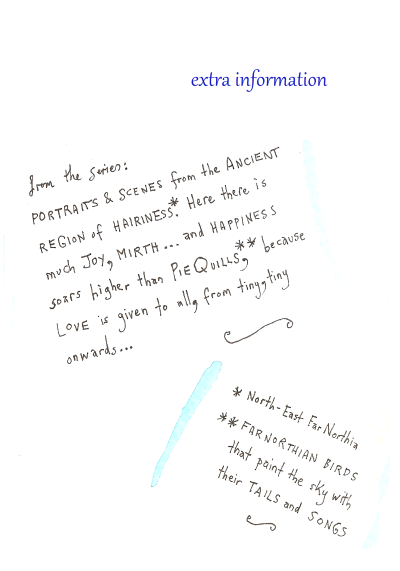 extra information
from the series:
PORTRAITS & SCENES from the ANCIENT
REGION of HAIRINESS*. Here there is
much JOY, MIRTH... and HAPPINESS
soars higher than PIEQUILLS,** because
LOVE is given to all, from tiny,tiny
onwards...
* North-East Far Northia
** FARNORTHIAN BIRDS
that paint the sky with
their TAILS and SONGS